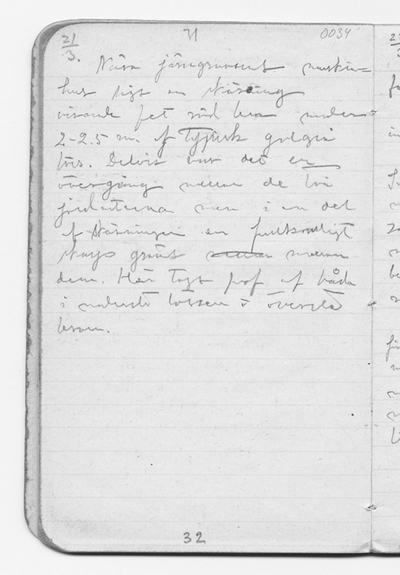 21/3.
71 0034
Nära järngruvans maskin-
hus en skärning
visande fet röd lera under
2-2.5 m. af typisk gulgrå
löss. Delvis var det en
övergång mellan de två
jordarterna men i en del
af skärningen en fullkomligt
skarp gräns mellan
dem. Här togs prof af båda
i nedersta lössen o översta
leran.
32